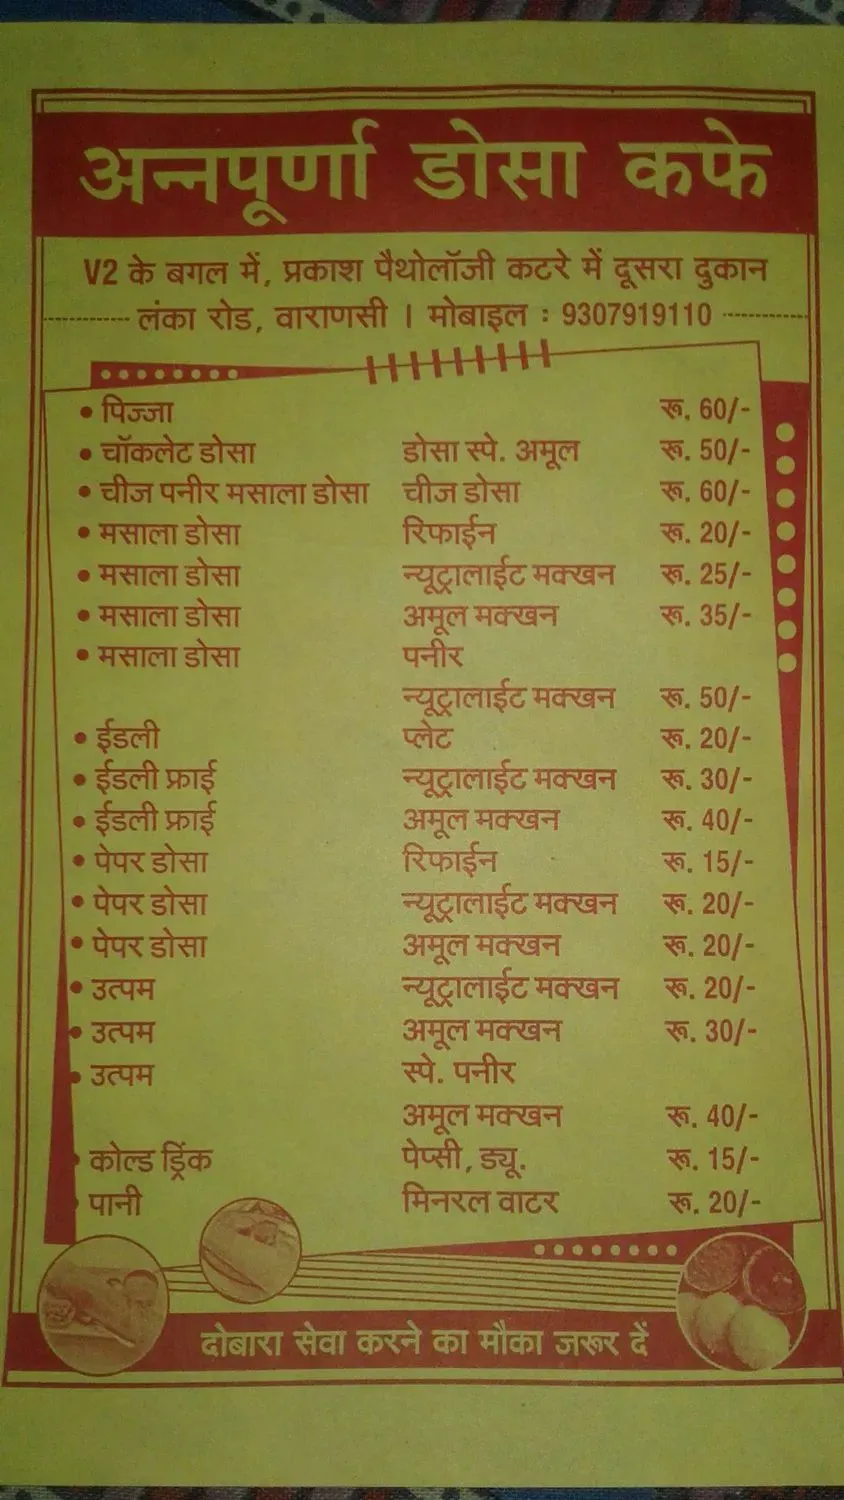 अन्नपूर्णा डोसा कफे
V2 के बगल में, प्रकाश पैथोलॉजी कटरे में दूसरा दुकान
लंका रोड, वाराणसी । मोबाइल : 9307919110
• पिज्जा रू. 60/-
• चॉकलेट डोसा डोसा स्पे. अमूल रू. 50/-
• चीज पनीर मसाला डोसा चीज डोसा रू. 60/-
• मसाला डोसा रिफाईन रू. 20/-
• मसाला डोसा न्यूट्रालाईट मक्खन रू. 25/-
• मसाला डोसा अमूल मक्खन रू. 35/-
• मसाला डोसा पनीर
न्यूट्रालाईट मक्खन रू. 50/-
• ईडली प्लेट रू. 20/-
• ईडली फ्राई न्यूट्रालाईट मक्खन रू. 30/-
• ईडली फ्राई अमूल मक्खन रू. 40/-
• पेपर डोसा रिफाईन रू. 15/-
• पेपर डोसा न्यूट्रालाईट मक्खन रू. 20/-
• पेपर डोसा अमूल मक्खन रू. 20/-
• उत्पम न्यूट्रालाईट मक्खन रू. 20/-
• उत्पम अमूल मक्खन रू. 30/-
• उत्पम स्पे. पनीर
अमूल मक्खन रू. 40/-
• कोल्ड ड्रिंक पेप्सी, ड्यू. रू. 15/-
• पानी मिनरल वाटर रू. 20/-
दोबारा सेवा करने का मौका जरूर दें